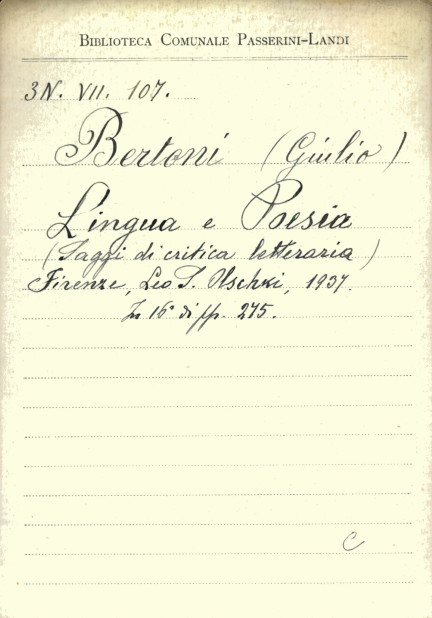 BIBLIOTECA COMUNALE PASSERINI-LANDI
3N. VII. 107.
Bertoni (Giulio)
Lingua e Poesia
(Saggi di critica letteraria)
Firenze, Leo S. Olschki, 1937.
In 16° di pp. 275.
C